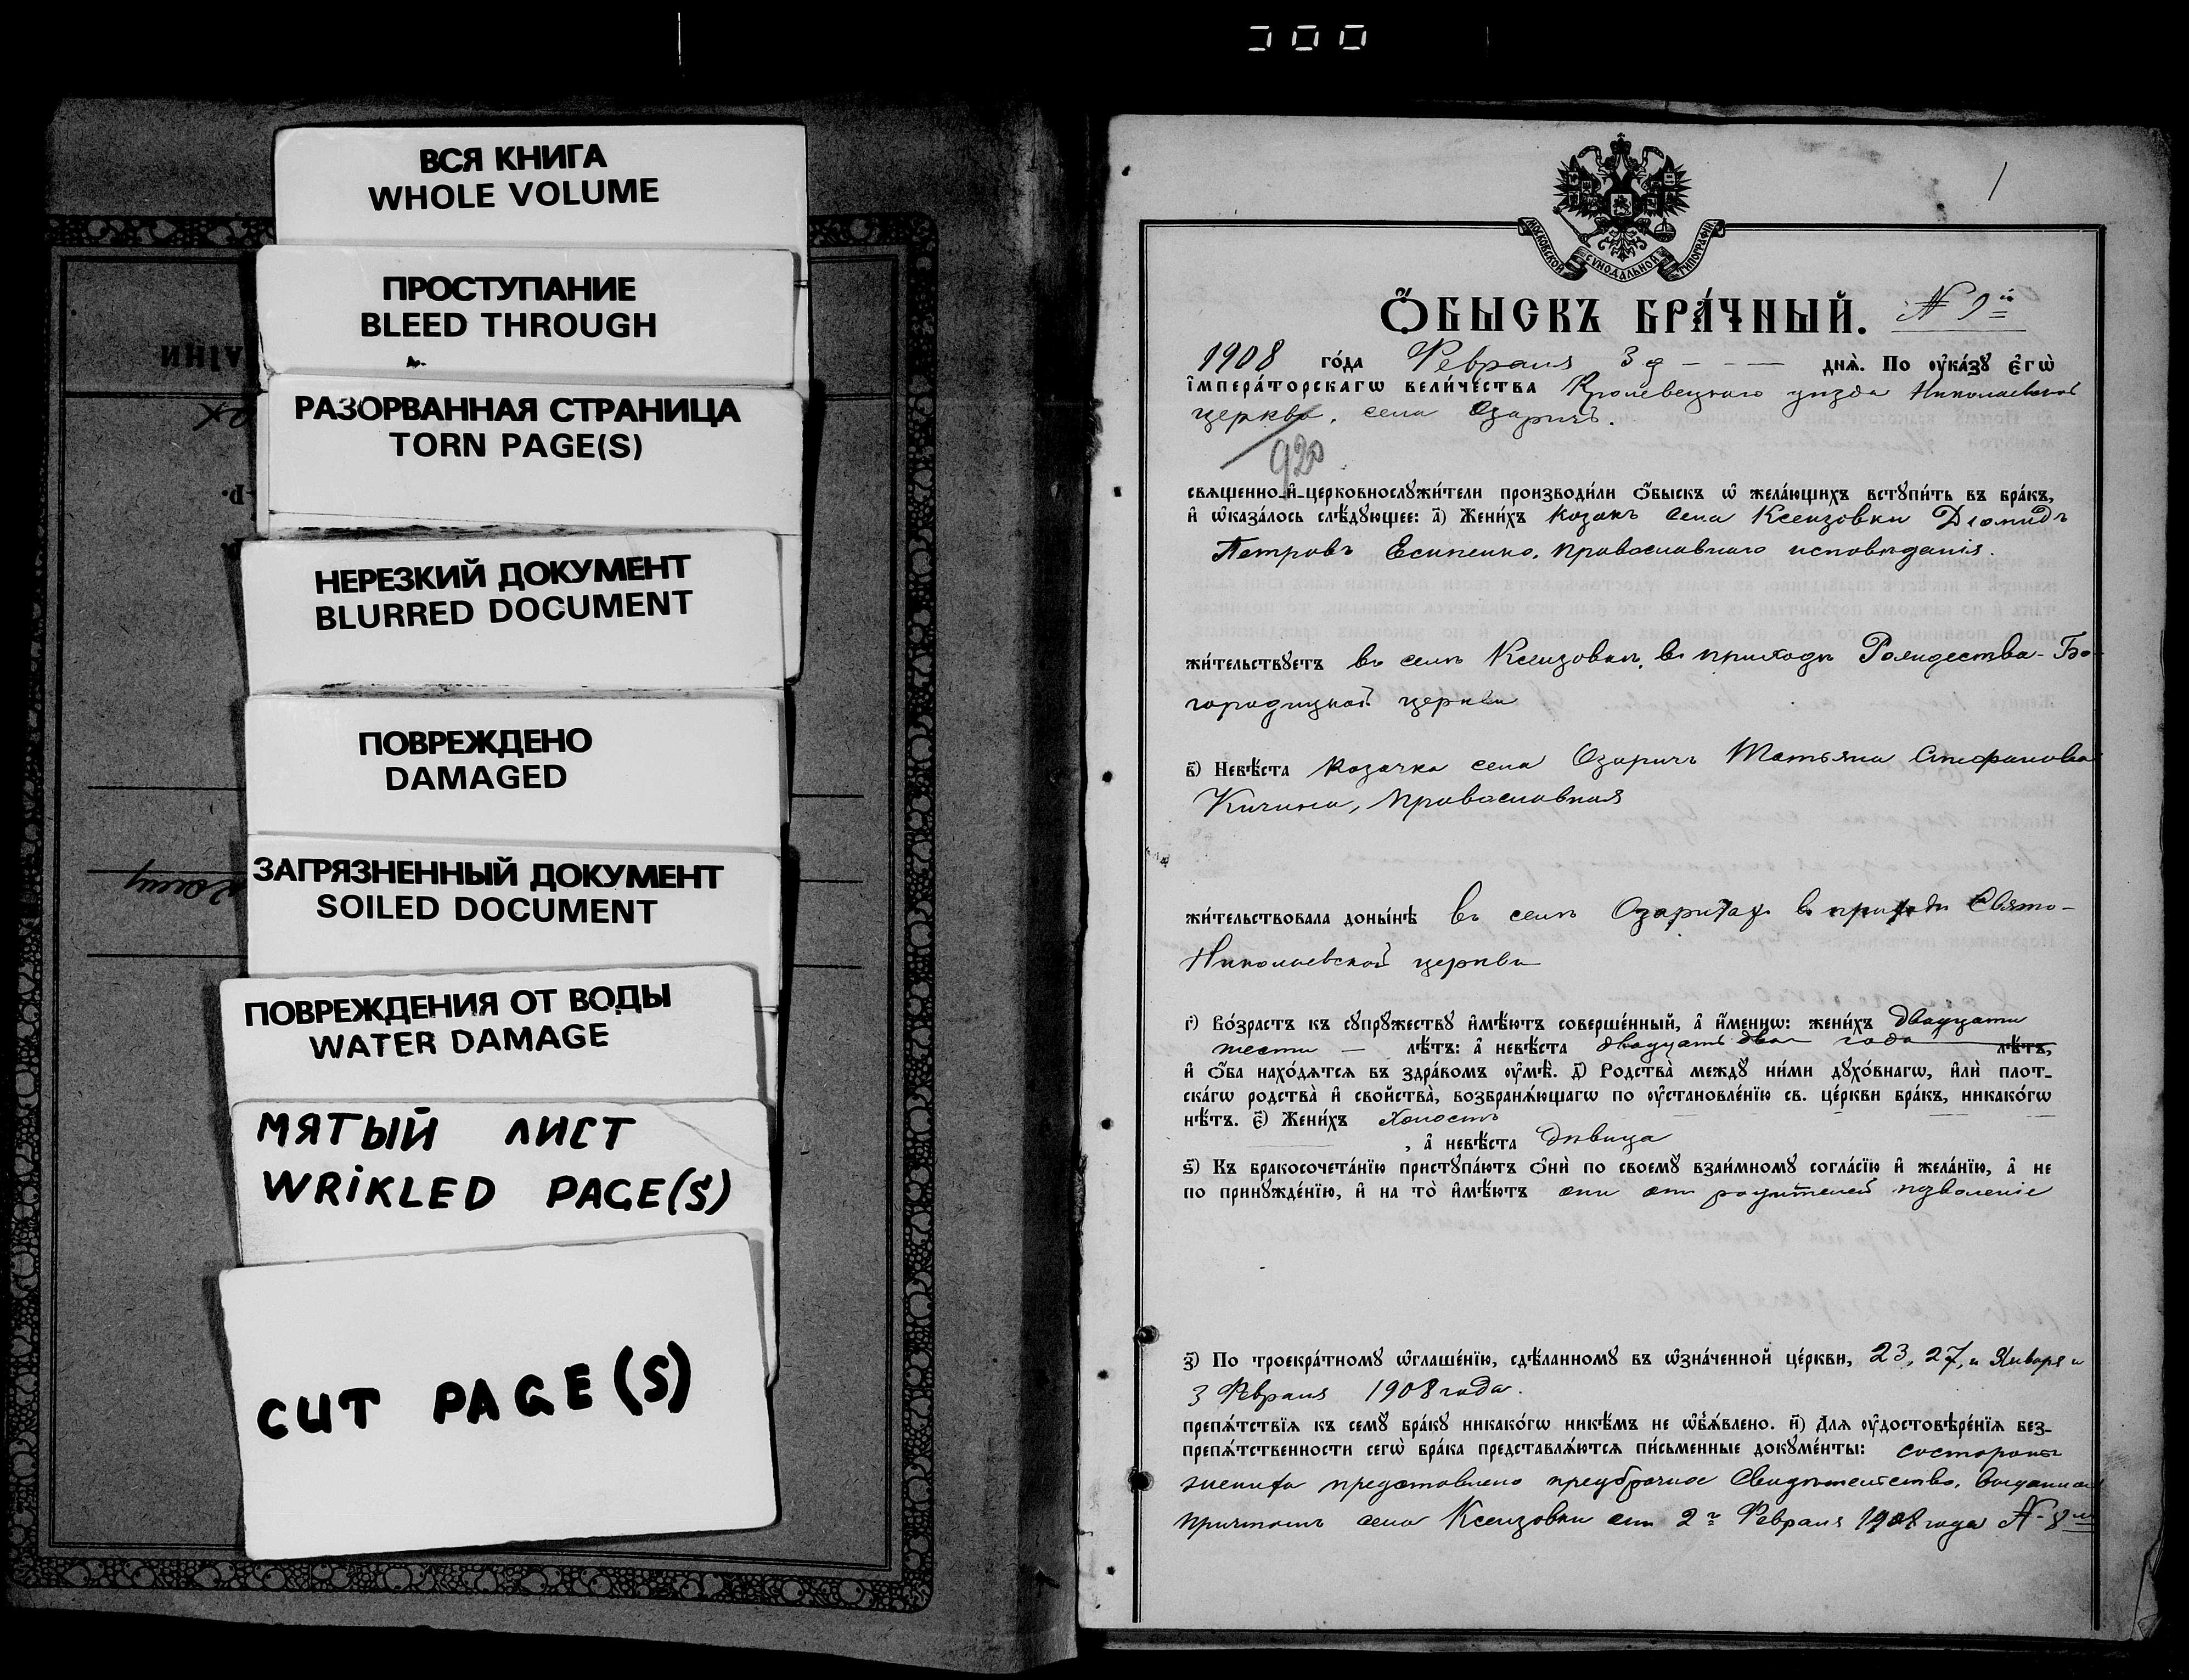 ВСЯ КНИГА
WHOLE VOLUME
ПРОСТУПАНИЕ
BLEED THROUGH
РАЗОРВАННАЯ СТРАНИЦА
TORN PAGE(S)
НЕРЕЗКИЙ ДОКУМЕНТ
BLURRED DOCUMENT
ПОВРЕЖДЕНО
DAMAGED
ЗАГРЯЗНЕННЫЙ ДОКУМЕНТ
SOILED DOCUMENT
ПОВРЕЖДЕНИЯ ОТ ВОДЫ
WATER DAMAGE
МЯТЫЙ ЛИСТ
WRIKLED PAGE(S)
CUT PAGE(S)
1
МОСКОВСКОЙ СѴНОДАЛЬНОЙ ТИПОГРАФІИ
Ѻ҆БЫСКЪ БРА́ЧНЫЙ.
1908 го́да Февраля 3 д - - - днѧ̀. По ᲂу҆ка́зꙋ є҆гѡ̀
і҆мпера́торскагѡ вели́чества Кролевецкаго уѣзда Николаевской
церкви, села Озаричъ.
920
свѧщенно-и҆-церковнослꙋжи́тели производи́ли ѻ҆́быскъ ѡ҆ жела́ющихъ встꙋпи́ть въ бра́къ,
и҆ ѡ҆каза́лось слѣ́дꙋющее: а҃) Жени́хъ козакъ села Ксензовки Діомидъ
Петровъ Есипенко, православнаго исповѣданія.
жи́тельствꙋетъ въ селѣ Ксензовкѣ, въ приходѣ Рождества-Бо-
городицкой церкви
в҃) Невѣ́ста козачка села Озаричъ Татьяна Стефанова
Кичина, православная
жи́тельствовала доны́нѣ въ селѣ Озаричахъ въ приходѣ Свято-
Николаевской церкви
г҃) Во́зрастъ къ сꙋпрꙋ́жествꙋ и҆мѣ́ютъ соверше́нный, а҆ и҆́меннѡ: жени́хъ двадцати
шести — лѣ́тъ: а҆ невѣ́ста двадцать два года лѣ́тъ,
и҆ ѻ҆́ба нахо́дѧтсѧ въ здра́вомъ ᲂу҆мѣ̀. д҃) Родства̀ междꙋ̀ ни́ми дꙋхо́внагѡ, и҆лѝ плот-
ска́гѡ родства̀ и҆ свойства̀, возбранѧ́ющагѡ по ᲂу҆становле́нїю св. це́ркви бра́къ, никако́гѡ
нѣ́тъ. є҃) Жени́хъ холостъ
, а҆ невѣ́ста дѣвица
ѕ҃) Къ бракосочета́нїю пристꙋпа́ютъ ѻ҆нѝ по своемꙋ̀ взаи́мномꙋ согла́сїю и҆ жела́нїю, а҆ не
по принꙋжде́нїю, и҆ на то̀ и҆мѣ́ютъ они отъ родителей позволеніе
з҃) По троекра́тномꙋ ѡ҆глаше́нїю, сдѣ́ланномꙋ въ ѡ҆зна́ченной це́ркви, 23, 27, и Января и
3 Февраля 1908 года.
препѧ́тствїѧ къ семꙋ̀ бра́кꙋ никако́гѡ никѣ́мъ не ѡ҆б̾ѧ́влено. и҃) Длѧ ᲂу҆достовѣре́нїѧ без-
препѧ́тственности сегѡ̀ бра́ка представлѧ́ютсѧ пи́сьменные докꙋме́нты: состороны
жениха представлено предбрачное свидѣтельство, выданное
причтомъ села Ксензовки отъ 2 Февраля 1908 года №